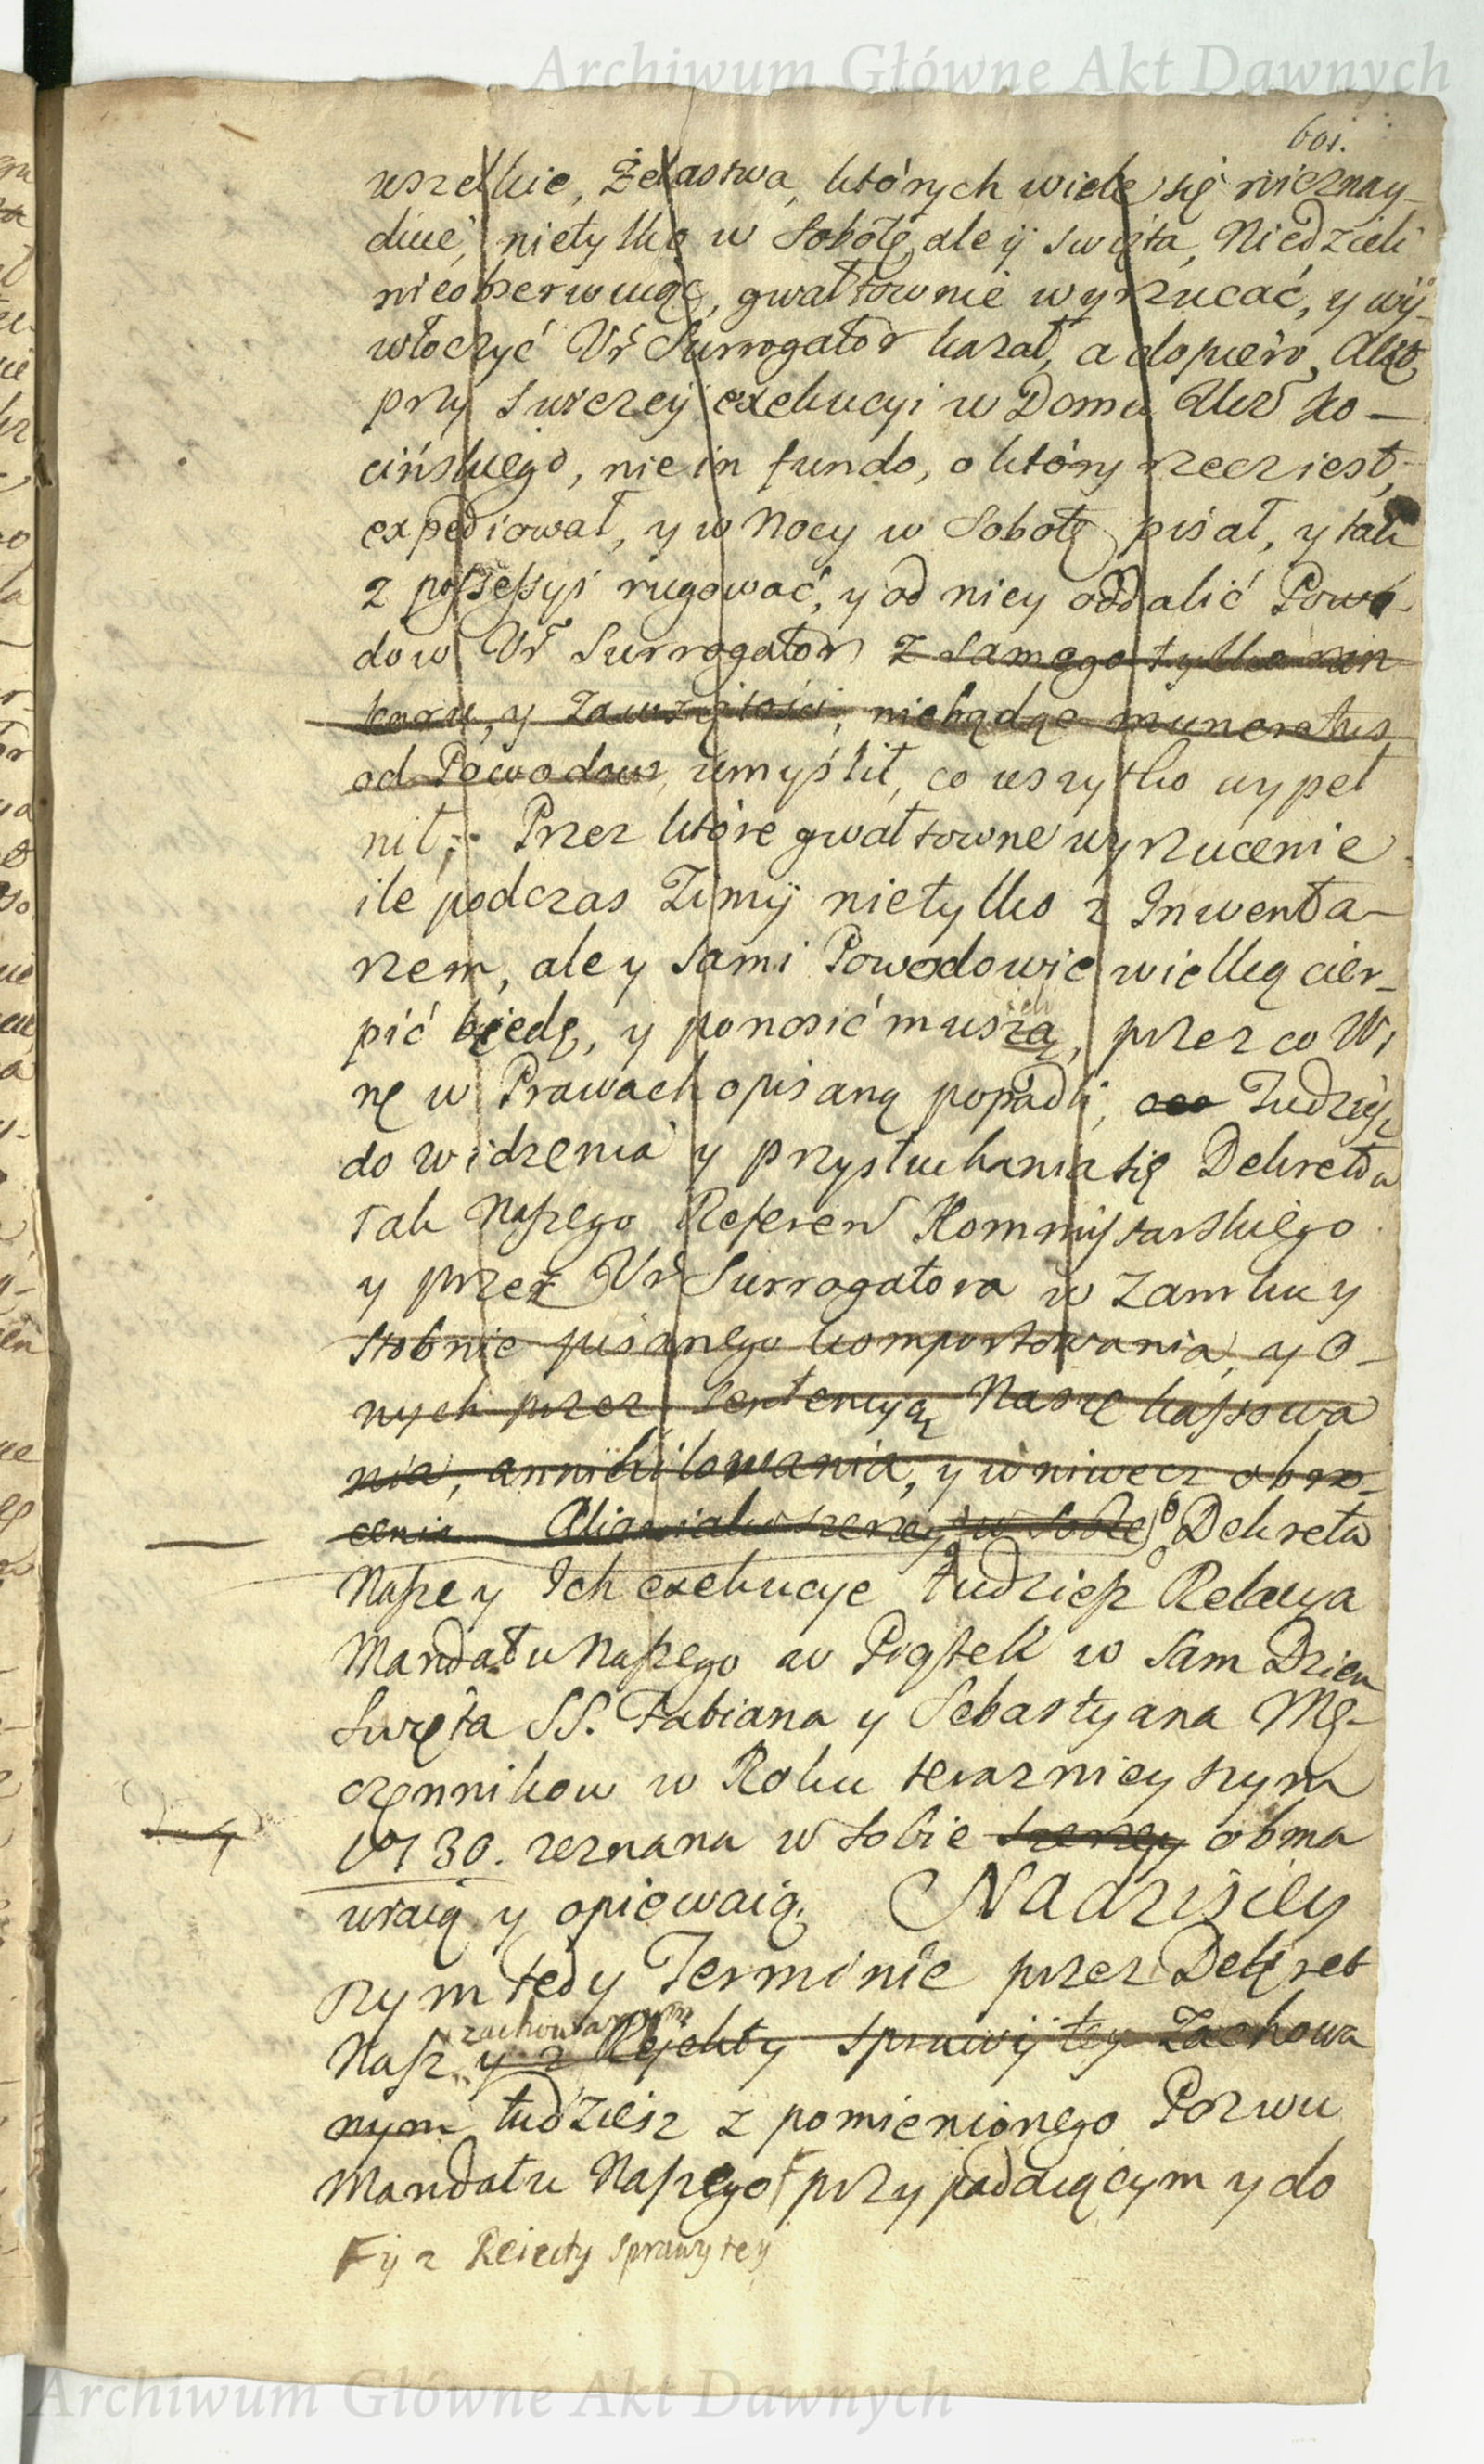 Archiwum Główne Akt Dawnych
601.
wszelkie, Żelastwa, których wiele się nieznay-
duie, nietylko w Sobotę, ale ÿ święta, Niedzieli
nieobserwuiąc, gwałtownie wyrzucać, y wÿ-
włoczyć Ur Surrogator kazał, a dopiero, Akt
przy swieczy exekucyi w Domu Ur Ko-
cińskiego, nie in fundo, o który rzecz iest,
expediował, y w Nocy w Sobotę pisał, y tak
z possessyi rugować, y od niey oddalić Powo-
dow Ur Surrogator z samego tylko ran
koru, y zawziętości, niebędąc muneratus
od Powodow, umyślił, co wszytko wypeł
nił; Przez które gwałtowne wyrzucenie
ile podczas Zimÿ nietylko z Inwenta-
rzem, ale y sami Powodowie wielką cier-
pić biedę, y ponosić muszą, przez co Wi
nę w Prawach opisaną popadli, Tudziesz
do widzenia y przysłuchania się Dekretu
tak Naszego Referen Kommissarskiego
y przez Ur Surrogatora w Zamku y
Stobnie pisanego komportowania, y o-
nych przez Sentencyą Naszę kassowa
nia, annihilowania, y wniwecz obro-
cenia Dekreta
Nasze y Ich exekucye tudziesz Relacya
Mandatu Naszego w Piątek w sam Dzien
Swięta SS. Fabiana y Sebastyana Mę-
czenników w Roku teraznieyszym
1730. zeznana w sobie szerzey obma
wiaią y opiewaią. Nadzisiey
szym tedy Terminie przez Dekret
zachowanym
Nasz y z Rejekty sprawÿ tey zachowa
nym tudziesz z pomienionego Pozwu
Mandatu Naszego F przypadaiącym y do
F ÿ z Reiekty sprawy tey
Archiwum Główne Akt Dawnych